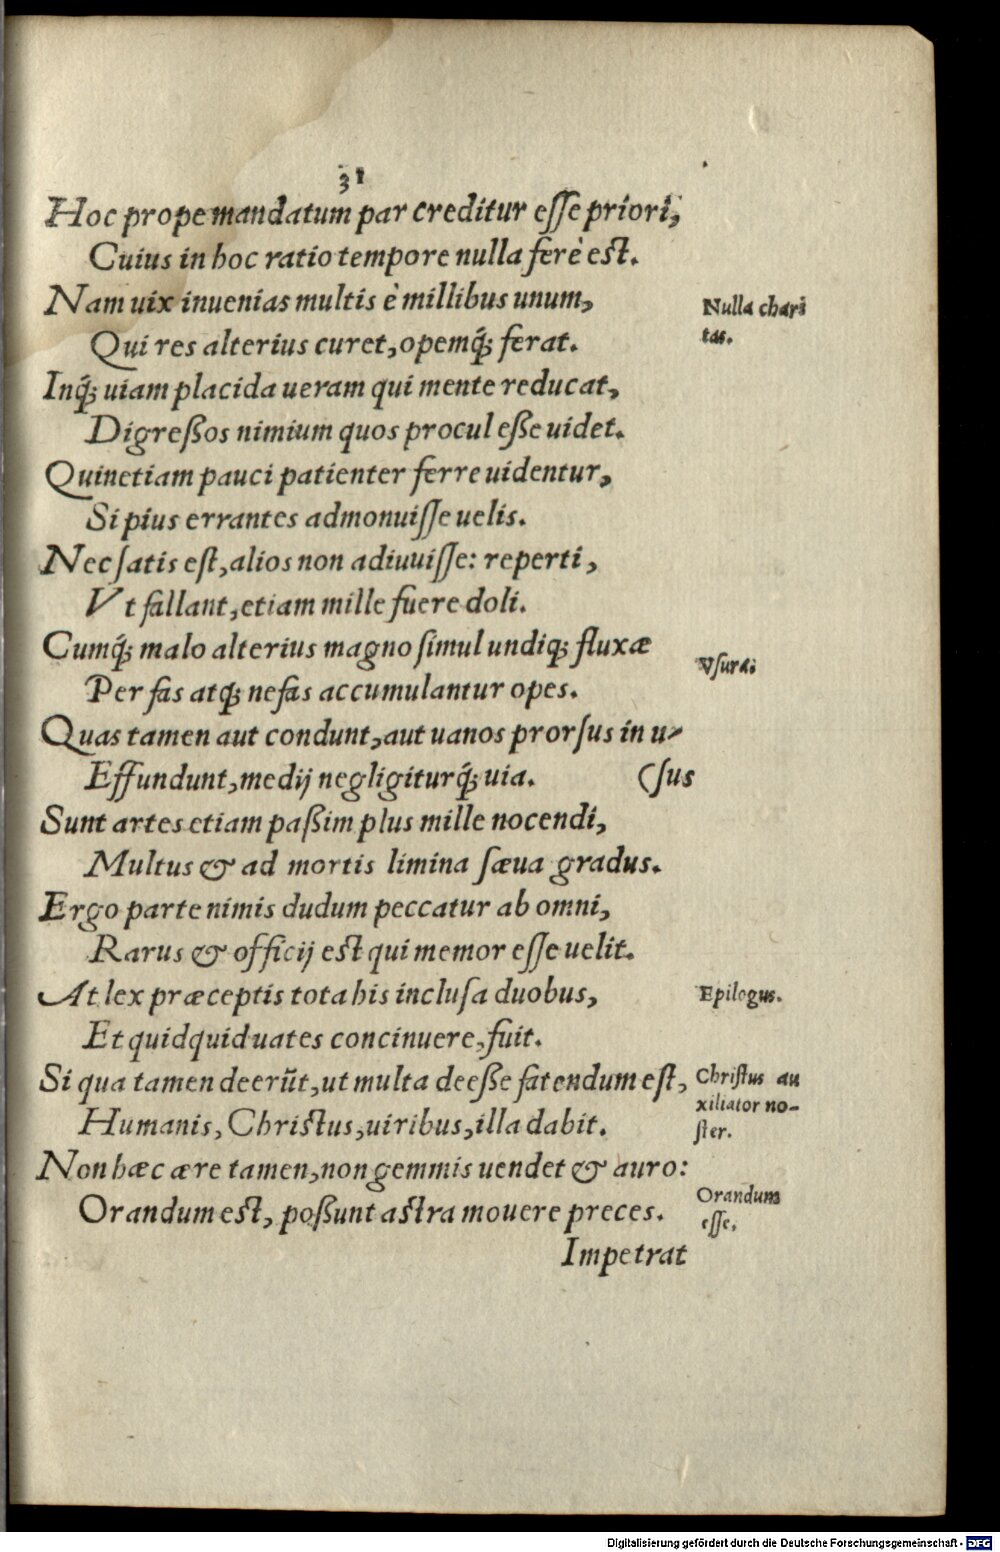 31
Hoc prope mandatum par creditur eſſe priori,
Cuius in hoc ratio tempore nulla ferè est.
Nam uix inuenias multis è millibus unum,
Nulla chari
Qui res alterius curet, opemq́; ferat.
tas.
Inq́; uiam placida ueram qui mente reducat,
Digreßos nimium quos procul eße uidet.
Quinetiam pauci patienter ferre uidentur,
Si pius errantes admonuiſſe uelis.
Nec ſatis eſt, alios non adiuuiſſe: reperti,
Vt fallant, etiam mille fuere doli.
Cumq́; malo alterius magno ſimul undiq; fluxæ
Vſura:
Per fas atq; nefas accumulantur opes.
Quas tamen aut condunt, aut uanos prorſus in u-
Effundunt, medij negligiturq́; uia. (ſus
Sunt artes etiam paßim plus mille nocendi,
Multus & ad mortis limina ſæua gradus.
Ergo parte nimis dudum peccatur ab omni,
Rarus & officij est qui memor eſſe uelit.
At lex præceptis tota his incluſa duobus,
Epilogus.
Et quidquid uates concinuere, fuit.
Si qua tamen deerũt, ut multa deeße fatendum eſt,
Chriſtus au
xiliator no-
Humanis, Christus, uiribus, illa dabit.
ſter.
Non hæc ære tamen, non gemmis uendet & auro:
Orandum
Orandum est, poßunt astra mouere preces.
eſſe.
Impetrat
Digitalisierung gefördert durch die Deutsche Forschungsgemeinschaft - DFG